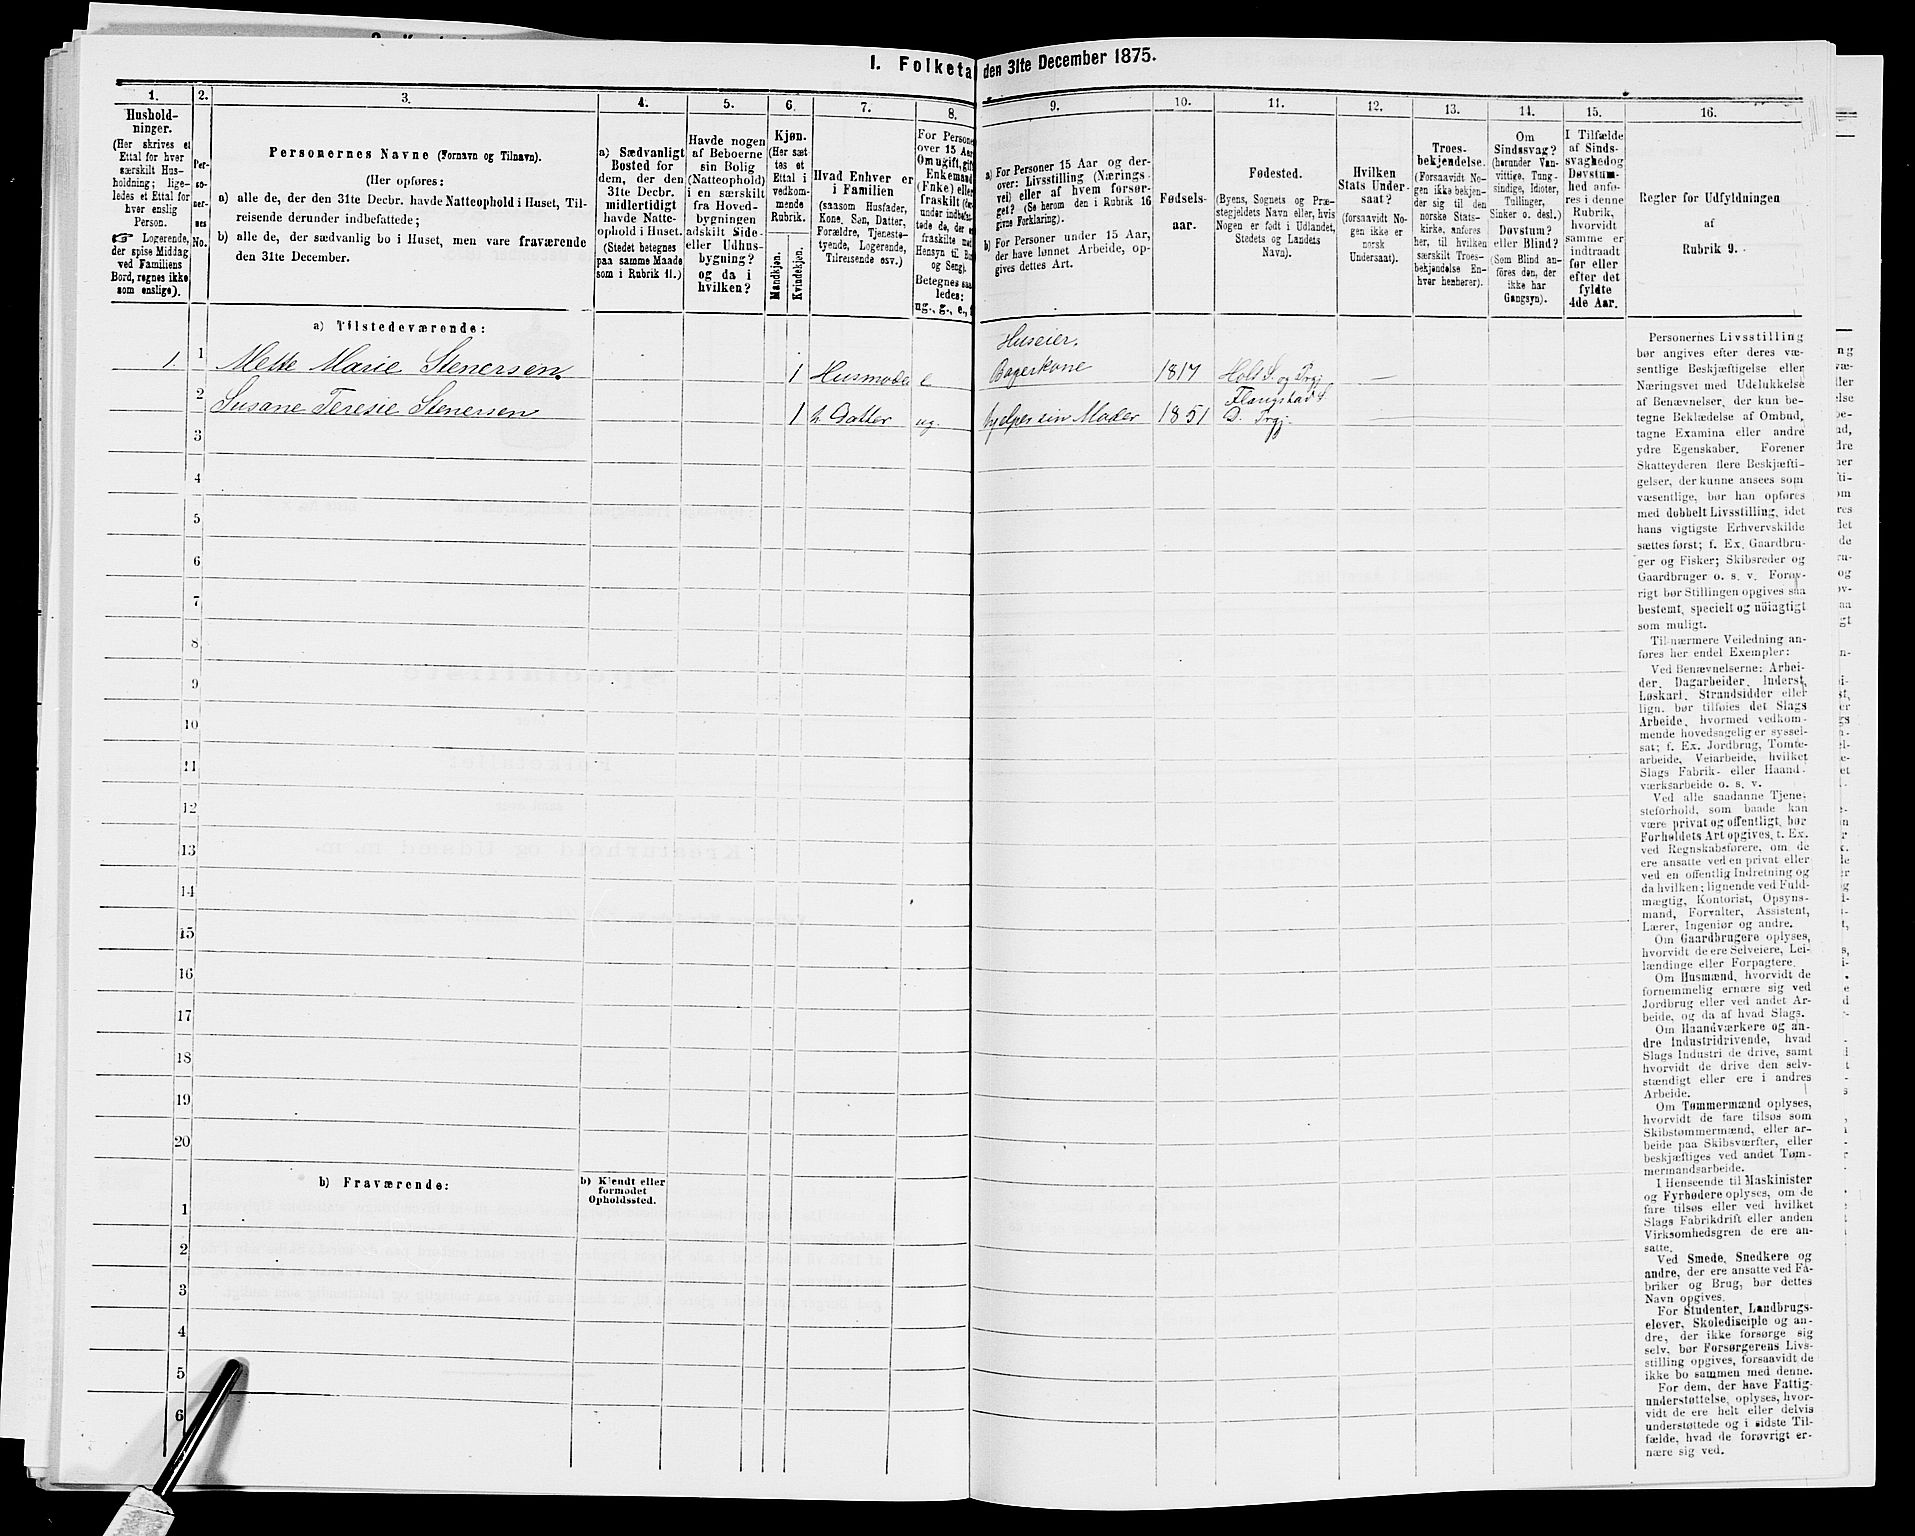 I. Folketa den 31te December 1875.
1.
Hushold-
ninger.
(Her skrives et
Ettal for hver
særskilt Hus-
holdning; lige-
ledes et Ettal for
hver enslig
Person.
☞ Logerende,
der spise Middag
ved Familiens
Bord, regnes ikke
som enslige).
2.
Per-
so-
ner-
nes
No.
3.
Personernes Navne (Fornavn og Tilnavn).
(Her opføres:
a) alle de, der den 31te Decbr. havde Natteophold i Huset, Til-
reisende derunder indbefattede;
b) alle de, der sædvanlig bo i Huset, men vare fraværende
den 31te December.
4.
a) Sædvanligt
Bosted for
dem, der den
31te Decbr.
midlertidigt
havde Natte-
ophold i Huset.
(Stedet betegnes
paa samme Maade
som i Rubrik 11.)
5.
Havde nogen
af Beboerne
sin Bolig
(Natteophold)
i en særskilt
fra Hoved-
bygningen
adskilt Side-
eller Udhus-
bygning?
og da i
hvilken?
6.
Kjøn.
(Her sæt-
tes et
Ettal i
vedkom-
mende
Rubrik.
Mandkjøn.
Kvindekjøn.
7.
Hvad Enhver er
i Familien
(saasom Husfader,
Kone, Søn, Datter,
Forældre, Tjeneste-
tyende, Logerende,
Tilreisende osv.)
8.
For Persone
over 15 Aar
Om ugift, gift
Enkemand
(Enke) eller
fraskilt
Betegnes saa
ledes:
ug., g., e., f
9.
a) For Personer 15 Aar og der-
over: Livsstilling (Nærings
vei) eller af hvem forsør-
get? (Se herom den i Rubrik 16
givne Forklaring).
b) For Personer under 15 Aar,
der have lønnet Arbeide, op-
gives dettes Art.
10.
Fødsels-
aar.
11.
Fødested.
(Byens, Sognets og Præ-
stegjeldets Navn eller, hvis
Nogen er født i Udlandet,
Stedets og Landets
Navn).
12.
Hvilken
Stats Under-
saat?
(forsaavidt No-
gen ikke er
norsk
Undersaat).
13.
Troes-
bekjendelse.
(Forsaavidt No-
gen ikke bekjen-
der sig til den
norske Stats-
kirke, anføres
her, til hvilken
særskilt Troes-
bekjendelse En-
hver henhører).
14.
Om
Sindssvag?
(herunder Van-
vittige, Tung-
sindige, Idioter,
Tullinger,
Sinker o. desl.)
Døvstum?
eller Blind?
(Som Blind an-
føres den, der
ikke har
Gangsyn).
15.
I Tilfælde
af Sinds-
svaghed og
Døvstum-
hed anfø-
res i denne
Rubrik,
hvorvidt
samme er
indtraadt
før eller
efter det
fyldte
4de Aar.
16.
Regler for Udfyldningen
af
Rubrik 9.
a) Tilstedeværende:
Huseier,
1. 1 Mette Marie Stenersen. 1 Husmoder e Bagerkone 1817 Holt S. og Prgj —
2 Susane Teresie Stenersen 1 h. Datter ug. hjelper sin Moder 1851 Flangstad S
D. Prgj. —
3
4
5
6
7
8
9
10
11
12
13
14
15
16
17
18
19
20
b) Fraværende:
b) Kjendt eller
formodet
Opholdssted.
1
2
3
4
5
6
Personernes Livsstilling
bør angives efter deres væ-
sentlige Beskjæftigelse eller
Næringsvei med Udelukkelse
af Benævnelser, der kun be-
tegne Beklædelse af Ombud,
tagne Examina eller andre
ydre Egenskaber. Forener
Skatteyderen flere Beskjæfti-
gelser, der kunne ansees som
væsentlige, bør han opføres
med dobbelt Livsstilling, idet
hans vigtigste Erhvervskilde
sættes først; f. Ex. Gaardbru-
ger og Fisker; Skibsreder og
Gaardbruger o. s. v. Forøv-
rigt bør Stillingen opgives saa
bestemt, specielt og nøiagtigt
som muligt.
Til nærmere Veiledning an-
føres her endel Exempler:
Ved Benævnelserne: Arbei-
der, Dagarbeider, Inderst,
Løskarl, Strandsidder eller
lign. bør tilføies det Slags
Arbeide, hvormed vedkom-
mende hovedsagelig er syssel-
sat; f. Ex. Jordbrug, Tomte-
arbeide, Veiarbeide, hvilket
Slags Fabrik- eller Haand-
værksarbeide o. s. v.
Ved alle saadanne Tjene-
steforhold, som baade kan
være privat og offentligt, bør
Forholdets Art opgives, t. Ex.
ved Regnskabsførere, om de
ere ansatte ved en privat eller
ved en offentlig Indretning og
da hvilken; lignende ved Fuld-
mægtig, Kontorist, Opsyns-
mand, Forvalter, Assistent,
Lærer, Ingeniør og andre.
Om Gaardbrugere oplyses,
hvorvidt de ere Selveiere, Lei-
lændinge eller Forpagtere.
Om Husmænd, hvorvidt de
fornemmelig ernære sig ved
Jordbrug eller ved andet Ar-
beide, og da af hvad Slags.
Om Haandværkere og an-
dre Industridrivende, hvad
Slags Industri de drive, samt
hvorvidt de drive den selv-
stændigt eller ere i andres
Arbeide.
Om Tømmermænd oplyses,
hvorvidt de fare tilsøs som
Skibstømmermænd, eller ar-
beide paa Skibsværfter, eller
beskjæftiges ved andet Tøm-
mermandsarbeide.
I Henseende til Maskinister
og Fyrbødere oplyses, om de
fare tilsøs eller ved hvilket
Slags Fabrikdrift eller anden
Virksomhedsgren de ere an-
satte.
Ved Smede, Snedkere og
andre, der ere ansatte ved Fa-
briker og Brug, bør dettes
Navn opgives.
For Studenter, Landbrugs-
elever, Skoledisciple og an-
dre, der ikke forsørge sig
selv, bør Forsørgerens Livs-
stilling opgives, forsaavidt de
ikke bo sammen med denne.
For dem, der have Fattig-
understøttelse, oplyses, hvor-
vidt de ere helt eller delvis
understøttede og i sidste Til-
fælde, hvad de forøvrigt er-
nære sig ved.